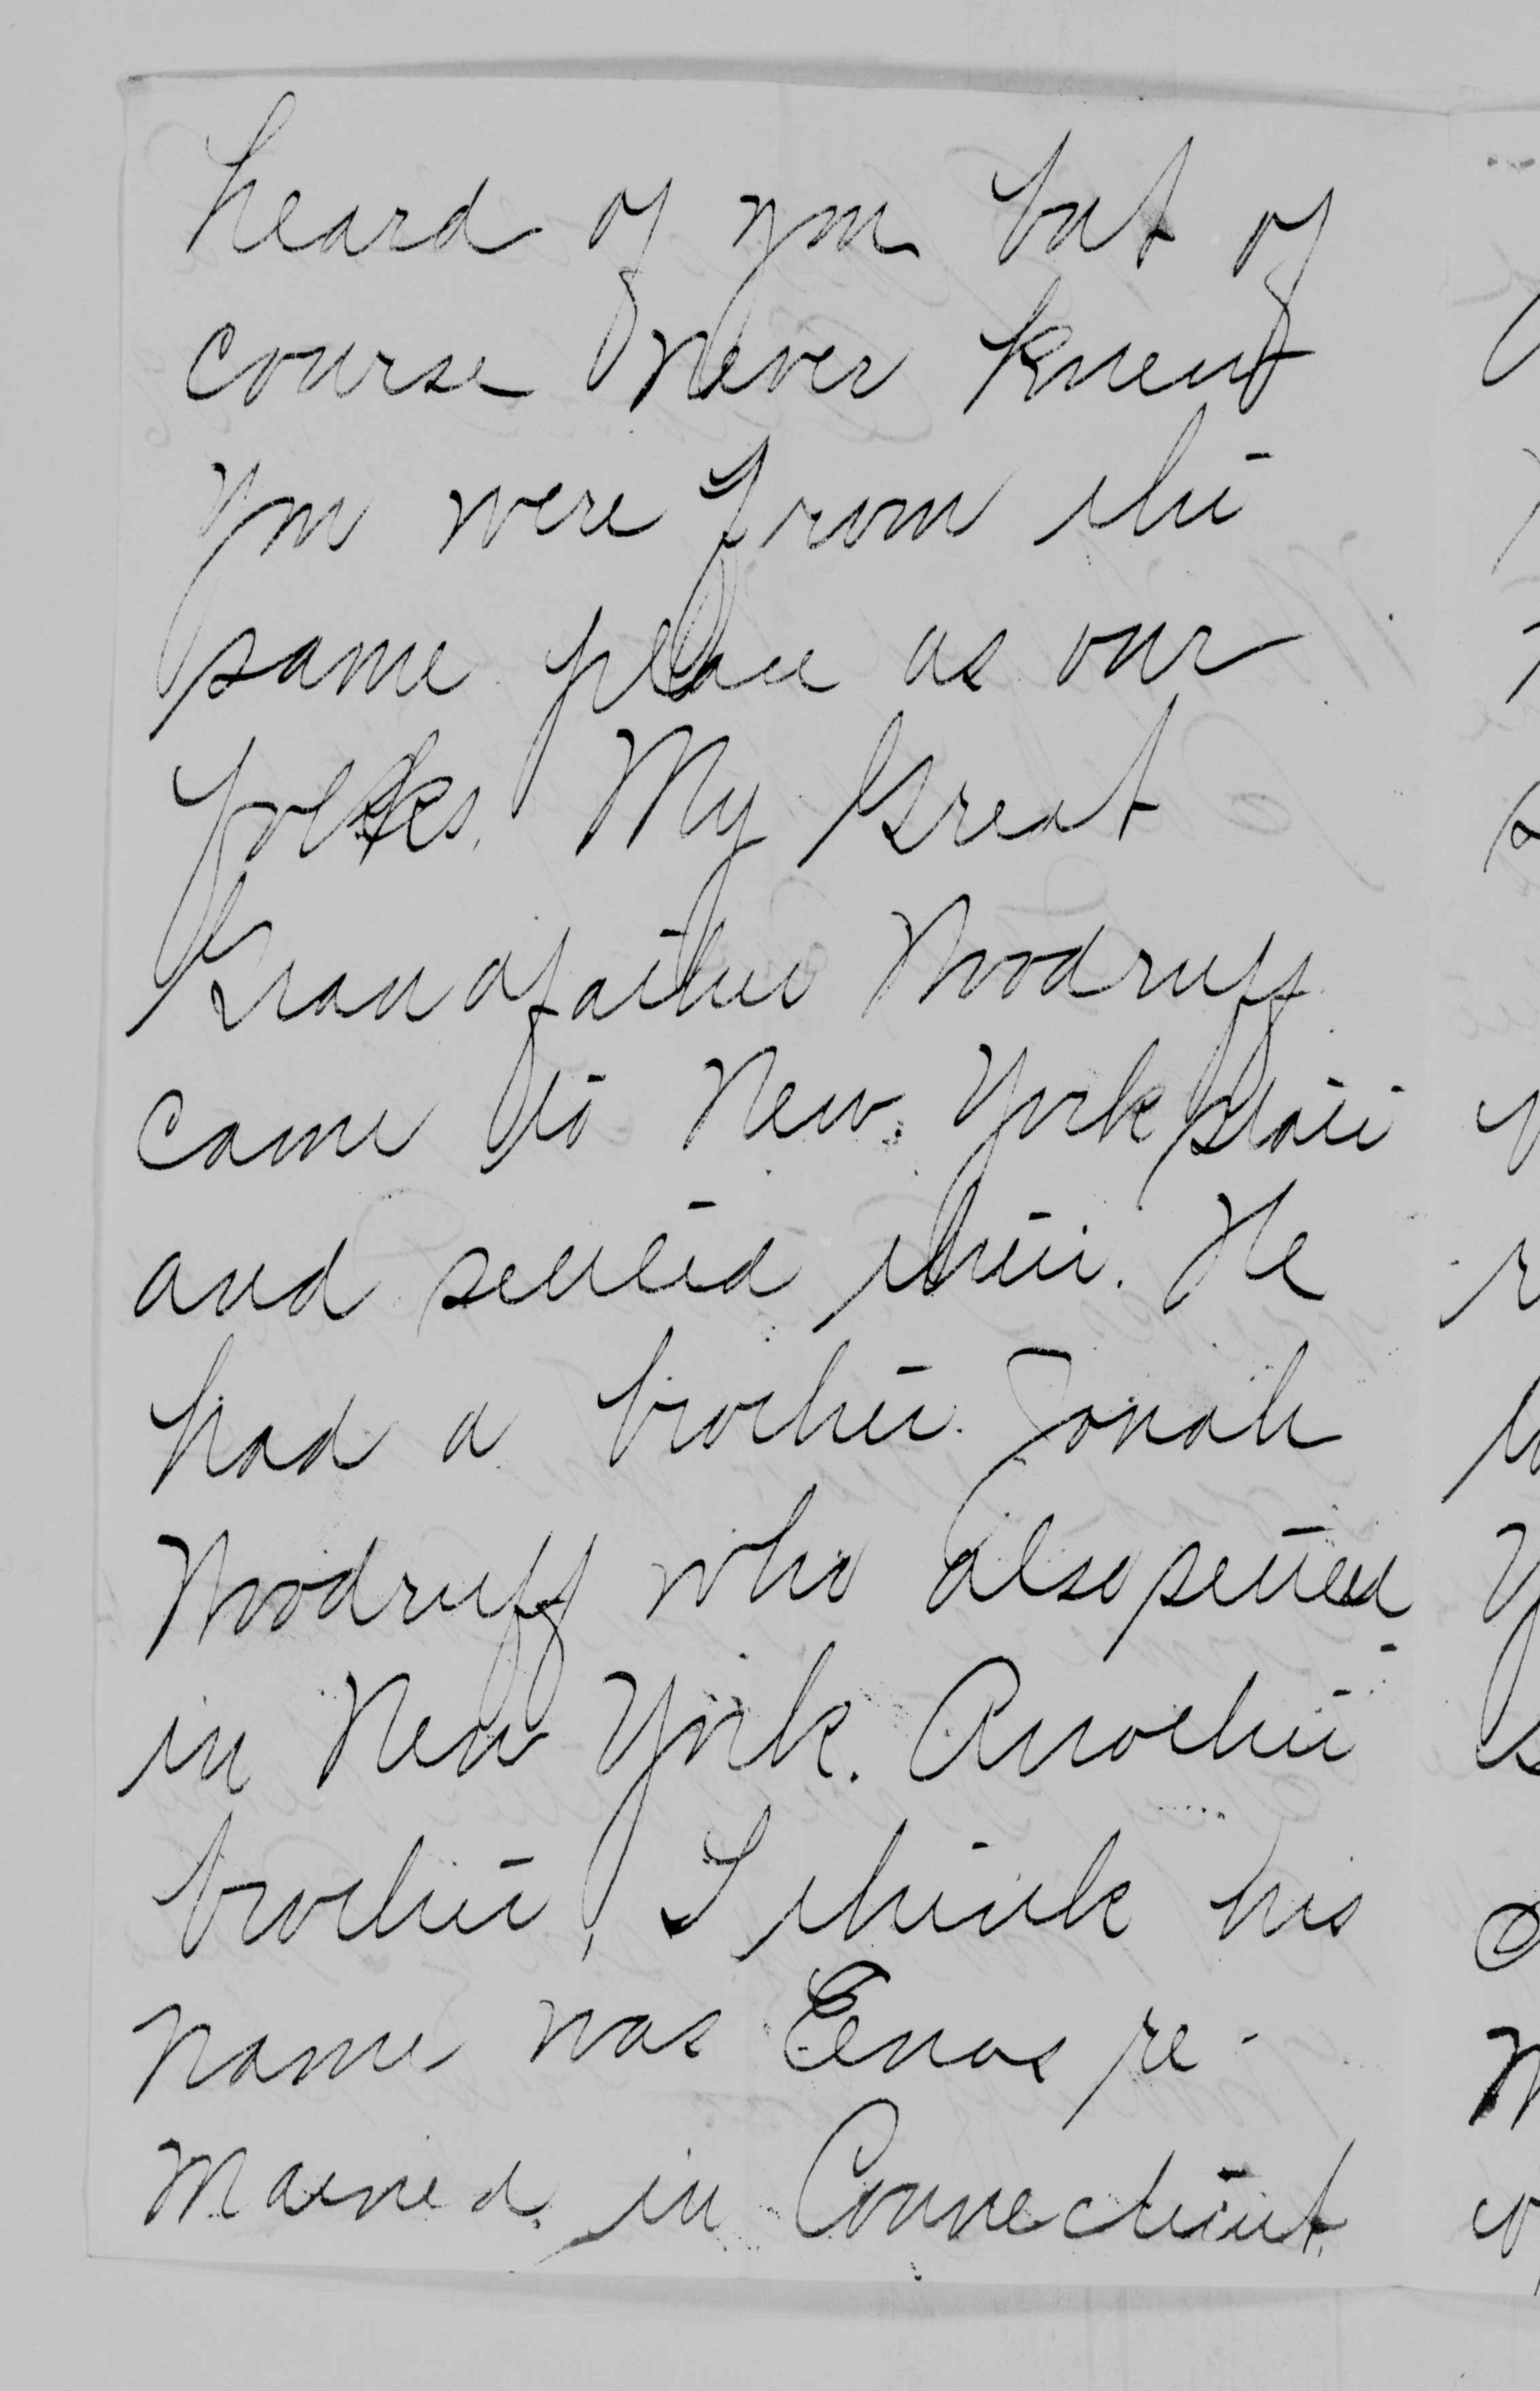 heard of you but of
course never knew
you were from the
same place as our
folks. My Great
Grandfather Woodruff
came to New York state
and settled there. He
had a brother Jonah
Woodruff who also settled
in New York. Another
brother, I think his
name was Enos re-
mained in Connecticut.